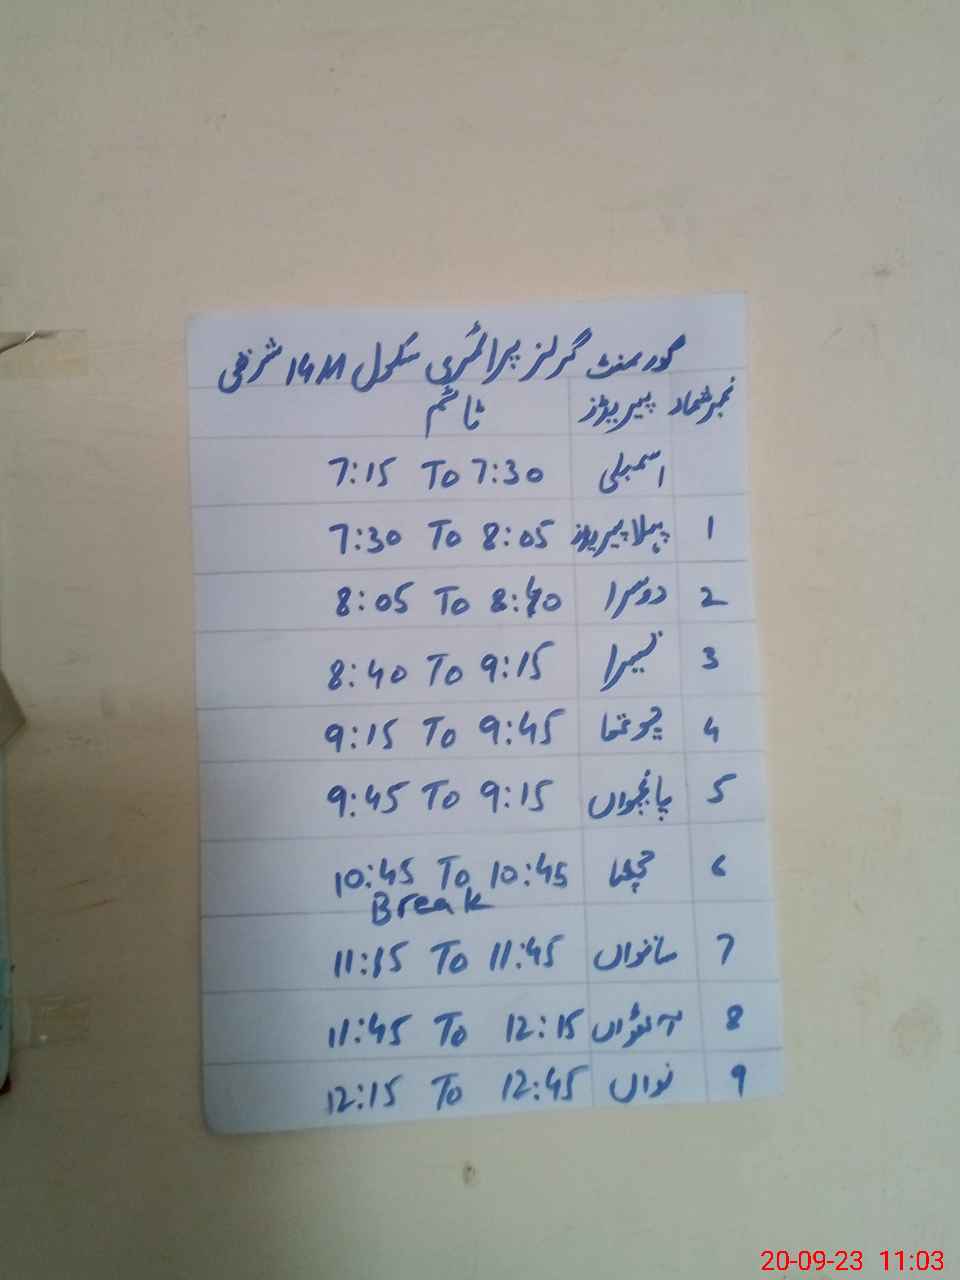 گورنمنٹ گرلز پرائمری سکول 14M شرقی
نمبر شمار پیریڈز ٹائم
اسمبلی 7:15 To 7:30
1 پہلا پیریڈز 7:30 To 8:05
2 دوسرا 8:05 To 8:40
3 تیسرا 8:40 To 9:15
4 چوتھا 9:15 To 9:45
5 پانچواں 9:45 To 9:15
6 چھٹا 10:45 To 10:45
Break
7 ساتواں 11:15 To 11:45
8 آٹھواں 11:45 To 12:15
9 نواں 12:15 To 12:45
20-09-23 11:03